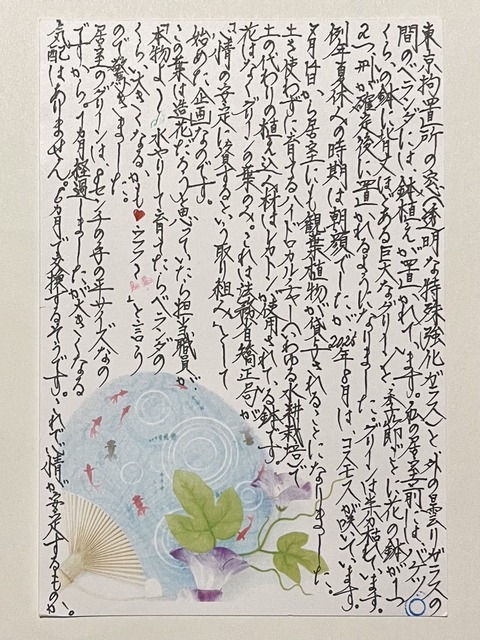 東京拘置所の窓(透明な特殊強化ガラス)と外の曇りガラスの
間のベランダには、鉢植えが置かれています。私の居室前には、バケツ
くらいの鉢に背丈ほどある巨大なグリーンと、季節ごとに花の鉢が1つ
2つ、刑が確定後に置かれるようになりました。グリーンは半分枯れています。
例年夏休みの時期は朝顔でしたが、2025年8月はコスモスが咲いています。
8月12日から居室にも観葉植物が貸与されることになりました。
土を使わずに育てるハイドロカルチャー、いわゆる水耕栽培で
土の代わりの植え込み材はレカトンが使用されている鉢です。
花はなくグリーンの葉のみ。これは法務省矯正局が
「心情の安定に資するという取り組み」として
始めた企画なのです。
この葉は造花だろうと思っていたら担当職員が
「本物よ〜水やりして育ったらベランダの
くらい大きくなるかも♥ウフフ〜」と言う
ので驚きました。
居室のグリーンは、8センチの手の平サイズなの
ですから。1カ月経過しましたが大きくなる
気配はありません。6カ月で交換するそうです。これで心情が安定するものか。